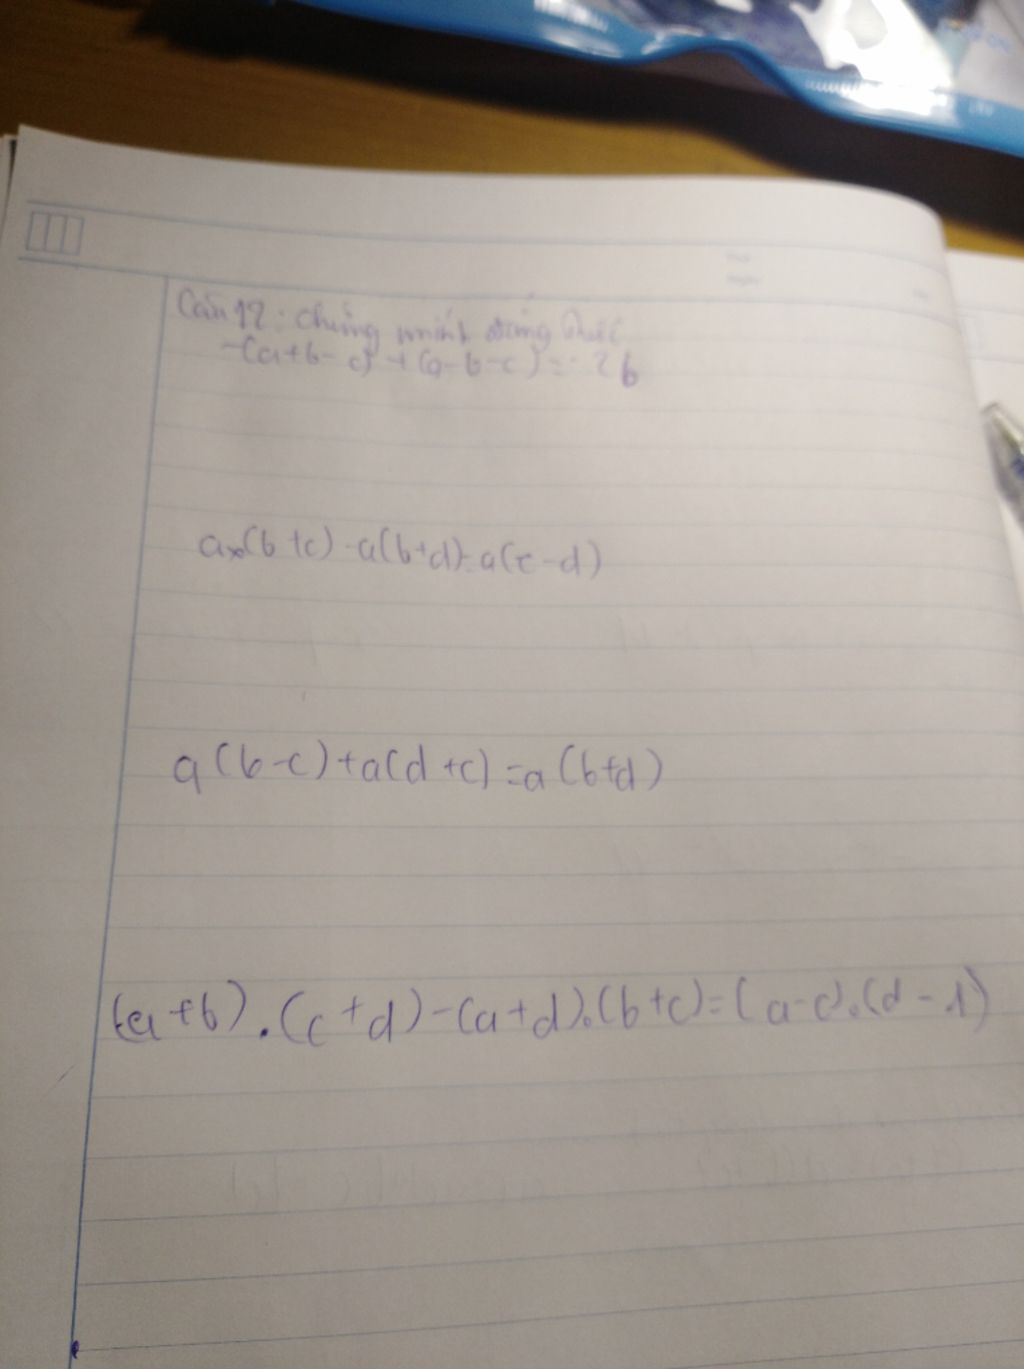 Câu 12: chứng minh đẳng thức
-(a+b-c)+(a-b-c)=-2b
a×(b+c)-a(b+d)=a(c-d)
a(b-c)+a(d+c)=a(b+d)
(a+b).(c+d)-(a+d).(b+c)=(a-c).(d-1)